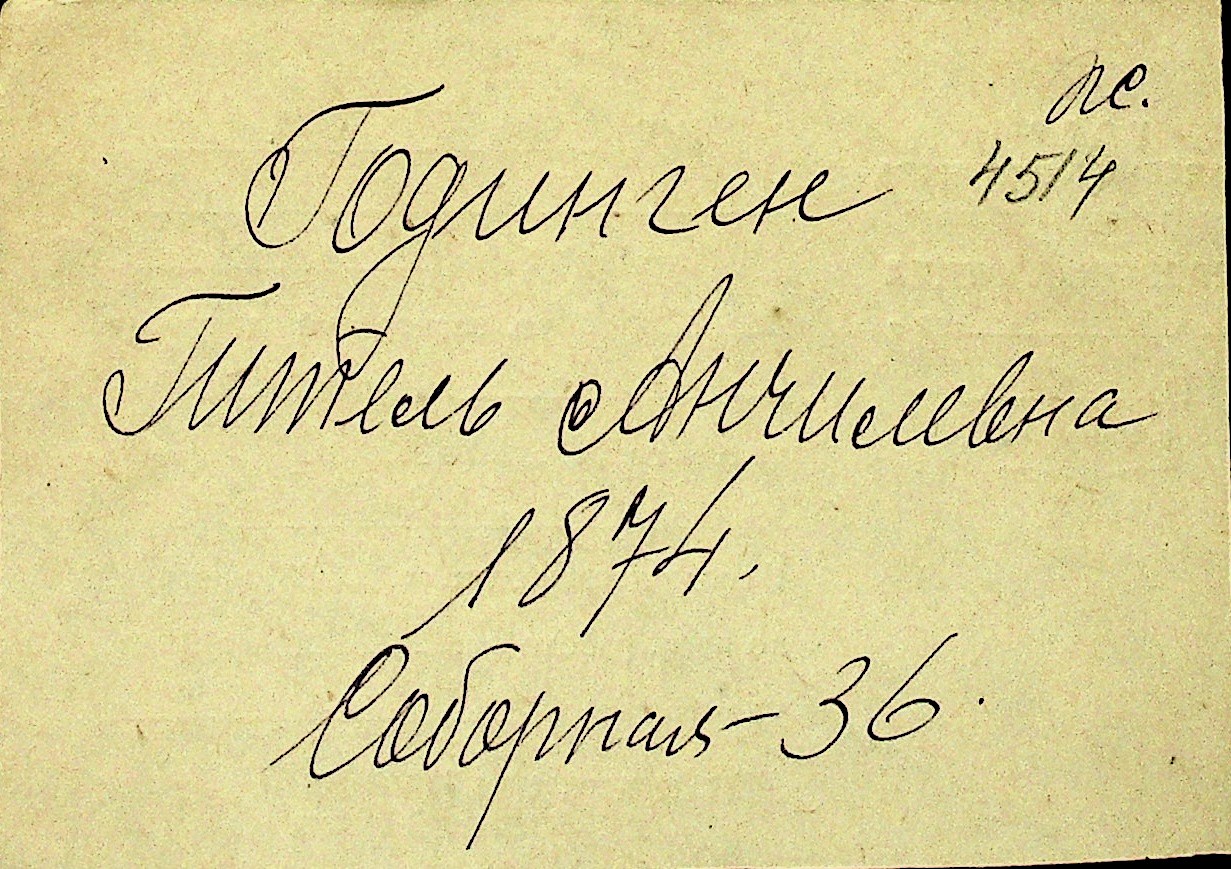 пс.
4514
Годинген
Гитель Анчилевна
1874.
Соборная-36.